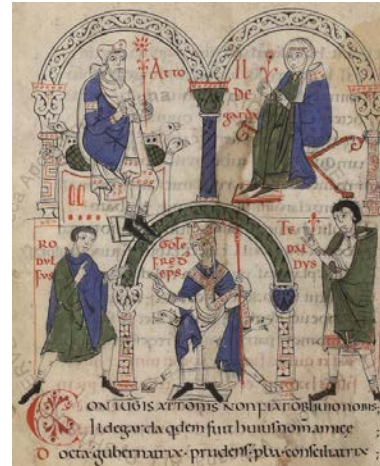 Atto
Il
de
garda
RO
DVL
FVS
GOTE
FRED
EPS
TE
DAL
DVS
CONIVGIS ATTONIS NON FIAT OBLIVIO NOMIS
Ildegarda qdem fuit huius nomen amice
Docta gubernatrix prudens pba consiliatrix